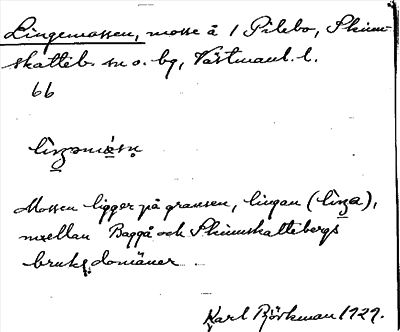 Lingemossen, mosse å 1 Pilebo, Skinn-
skatteb. sn o. bg, Västmanl. l.
66
Mossen ligger på gränsen, lingan (
mellan Baggå och Skinnskattebergs
bruks domäner.
Karl Björkman 1929.